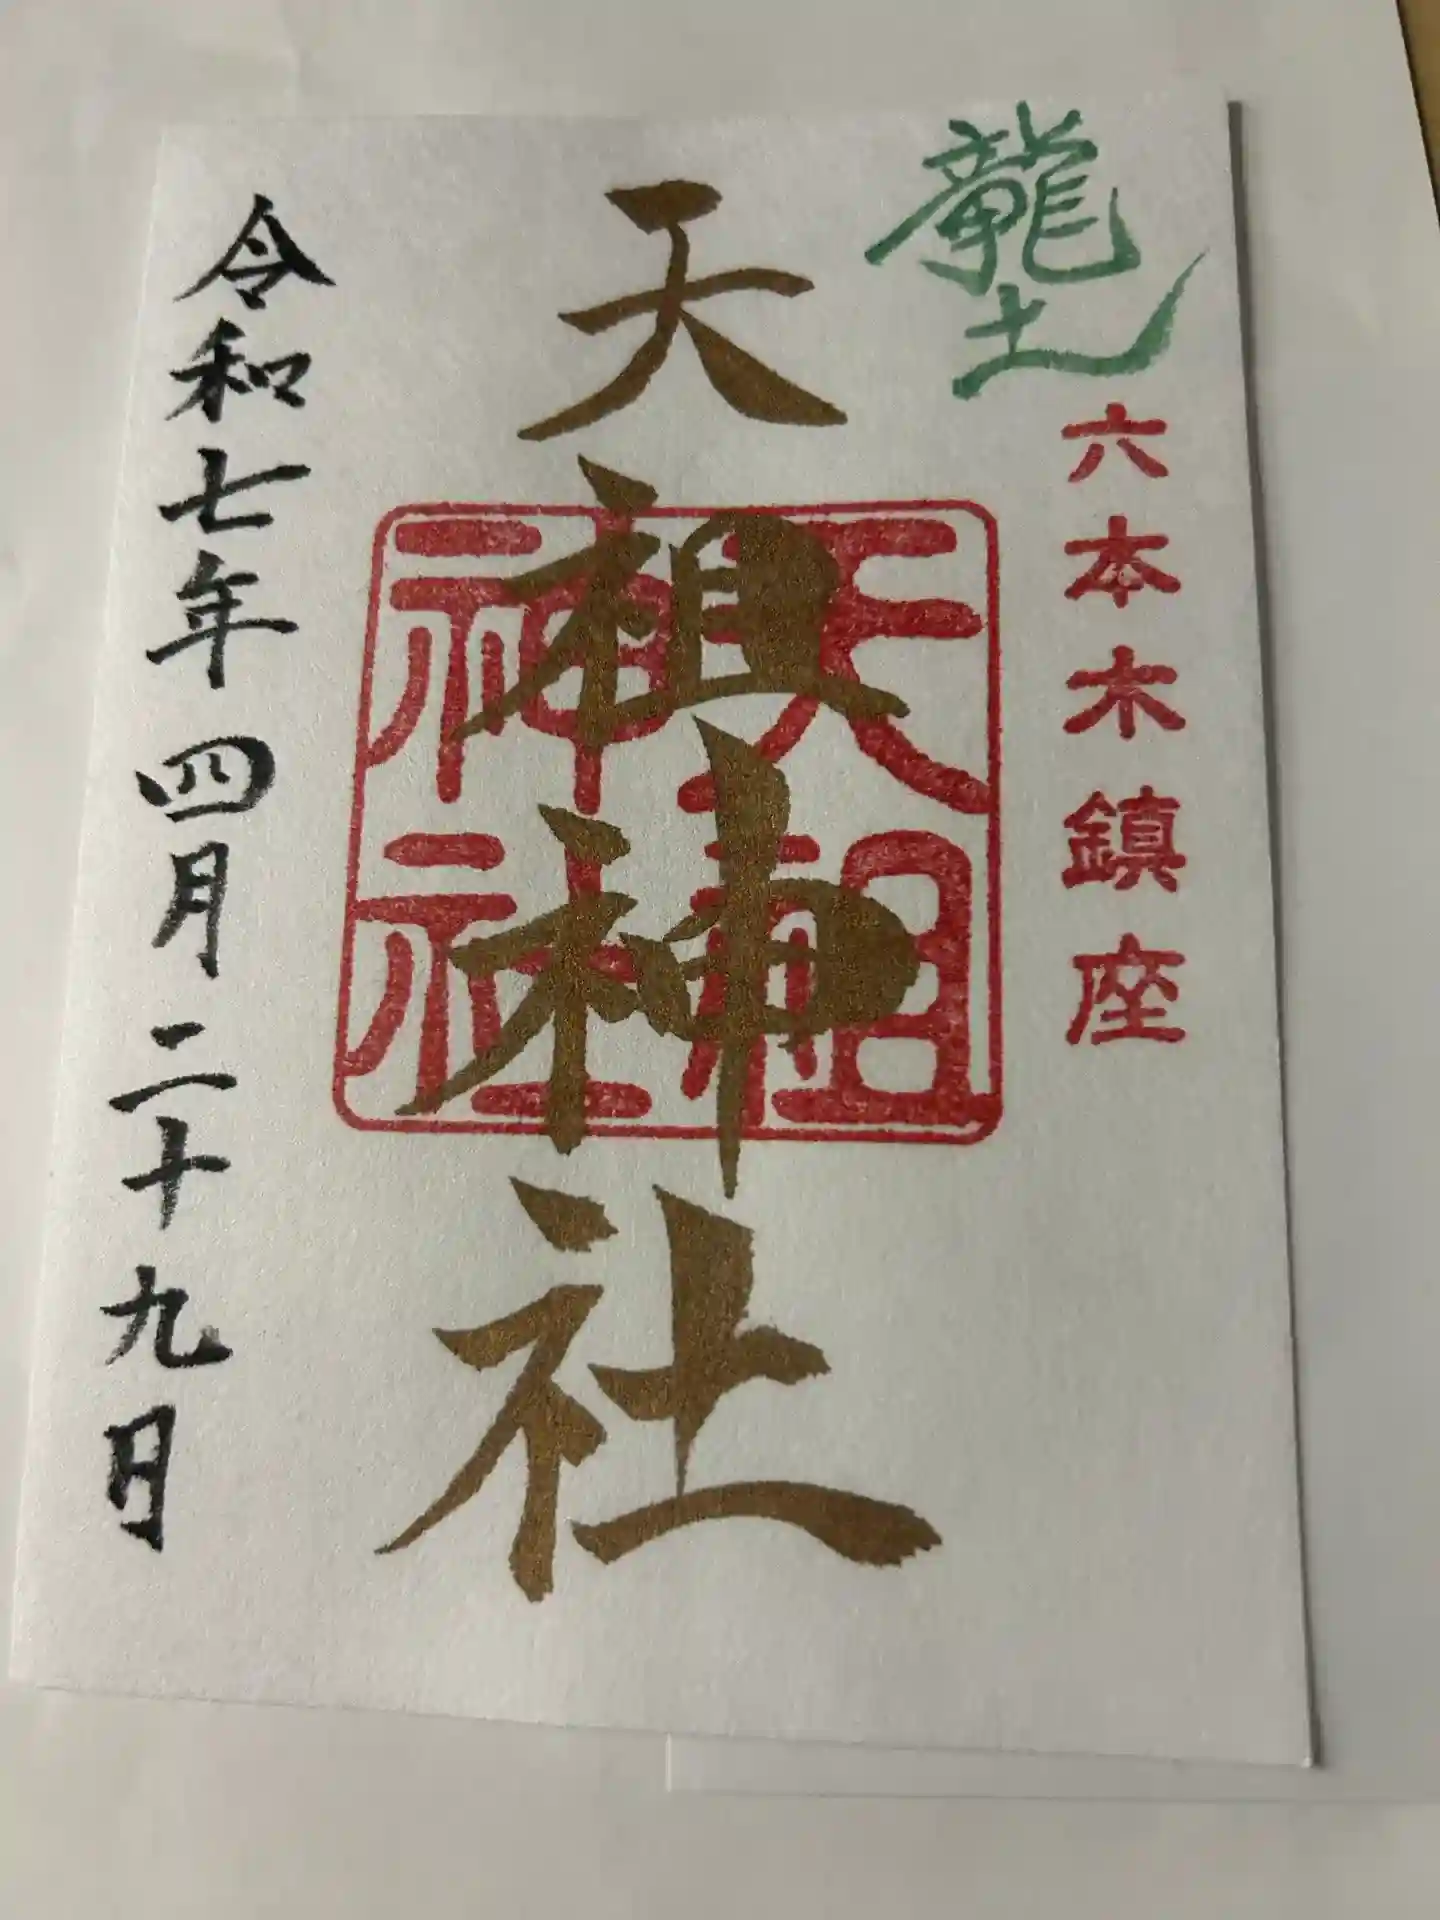 龍土
六本木鎮座
天祖神社
天祖
神社
令和七年四月二十九日